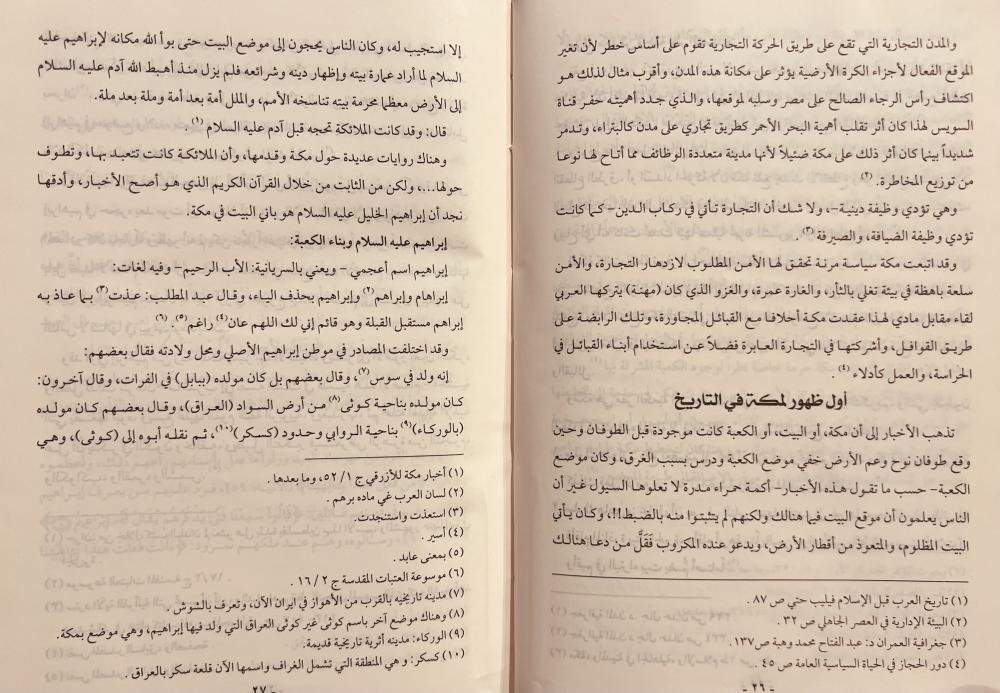 والمدن التجارية التي تقع على طريق الحركة التجارية تقوم على أساس خطر لأن تغير
الموقع الفعال لأجزاء الكرة الأرضية يؤثر على مكانة هذه المدن، وأقرب مثال لذلك هو
اكتشاف رأس الرجاء الصالح على مصر وسلبه لموقعها، والذي جدد أهميته حفر قناة
السويس لهذا كان أثر تقلب أهمية البحر الأحمر كطريق تجاري على مدن كالبتراء، وتدمر
شديداً بينما كان أثر ذلك على مكة ضئيلاً لأنها مدينة متعددة الوظائف مما أتاح لها نوعا
من توزيع المخاطرة. (٢)
وهي تؤدي وظيفة دينية-، ولا شك أن التجارة تأتي في ركاب الدين- كما كانت
تؤدي وظيفة الضيافة، والصيرفة (٣) .
وقد اتبعت مكة سياسة مرنة تحقق لها الأمن المطلوب لازدهار التجارة، والأمن
سلعة باهظة في بيئة تغلي بالثأر، والغارة عمرة، والغزو الذي كان (مهنة) يتركها العربي
لقاء مقابل مادي لهذا عقدت مكة أحلافا مع القبائل المجاورة، وتلك الرابضة على
طريق القوافل، وأشركتها في التجارة العابرة فضلاً عن استخدام أبناء القبائل في
الحراسة، والعمل كأدلاء (٤) .
أول ظهور لمكة في التاريخ
تذهب الأخبار إلى أن مكة، أو البيت، أو الكعبة كانت موجودة قبل الطوفان وحين
وقع طوفان نوح وعم الأرض خفي موضع الكعبة ودرس بسبب الغرق، وكان موضع
الكعبة- حسب ما تقول هذه الأخبار- أكمة حمراء مدرة لا تعلوها السيول غير أن
الناس يعلمون أن موقع البيت فيما هنالك ولكنهم لم يتثبتوا منه بالضبط!!، وكان يأتي
البيت المظلوم، والمتعوذ من أقطار الأرض، ويدعو عنده المكروب فَقَلَّ من دعا هنالك
(١) تاريخ العرب قبل الإسلام فيليب حتي ص ٨٧ .
(٢) البيئة الإدارية في العصر الجاهلي ص ٣٢ .
(٣) جغرافية العمران د: عبد الفتاح محمد وهبة ص ١٣٧ .
(٤) دور الحجاز في الحياة السياسية العامة ص ٤٥ ..
- ٢٦ -
إلا استجيب له، وكان الناس يحجون إلى موضع البيت حتى بوأ الله مكانه لإبراهيم عليه
السلام لما أراد عمارة بيته وإظهار دينه وشرائعه فلم يزل منذ أهبط الله آدم عليه السلام
إلى الأرض معظما محرمة بيته تناسخه الأمم، والملل أمة بعد أمة وملة بعد ملة.
قال: وقد كانت الملائكة تحجه قبل آدم عليه السلام (١) .
وهناك روايات عديدة حول مكة وقدمها، وأن الملائكة كانت تتعبد بها، وتطوف
حولها...، ولكن من الثابت من خلال القرآن الكريم الذي هو أصح الأخبار، وأدقها
نجد أن إبراهيم الخليل عليه السلام هو باني البيت في مكة.
إبراهيم عليه السلام وبناء الكعبة:
إبراهيم اسم أعجمي - ويعني بالسريانية: الأب الرحيم- وفيه لغات:
إبراهام وإبراهم (٢) وإبراهيم بحذف الياء، وقال عبد المطلب: عذت (٣) بما عاذ به
إبراهم مستقبل القبلة وهو قائم إني لك اللهم عان (٤) راغم (٥) . (٦)
وقد اختلفت المصادر في موطن إبراهيم الأصلي ومحل ولادته فقال بعضهم:
إنه ولد في سوس (٧)، وقال بعضهم بل كان مولده (ببابل) في الفرات، وقال آخرون:
كان مولده بناحية كوثى (٨) من أرض السواد (العراق)، وقال بعضهم كان مولده
(بالوركاء) (٩) بناحية الروابي وحدود (كسكر) (١٠)، ثم نقله أبوه إلى (كوثى)، وهي
(١) أخبار مكة للأزرقي ج ١/ ٥٢، وما بعدها .
(٢) لسان العرب غي ماده برهم .
(٣) استعذت واستنجدت.
(٤) أسير .
(٥) بمعنى عابد .
(٦) موسوعة العتبات المقدسة ج ٢ / ١٦ .
(٧) مدينه تاريخيه بالقرب من الأهواز في ايران الآن، وتعرف بالشوش .
(٨) وهناك موضع آخر باسم كوثى غير كوثى العراق التي ولد فيها إبراهيم، وهي موضع بمكة.
(٩) الوركاء: مدينه أثرية تاريخية قديمة.
(١٠) كسكر: وهي المنطقة التي تشمل الغراف واسمها الآن قلعة سكر بالعراق .
- ٢٧ -